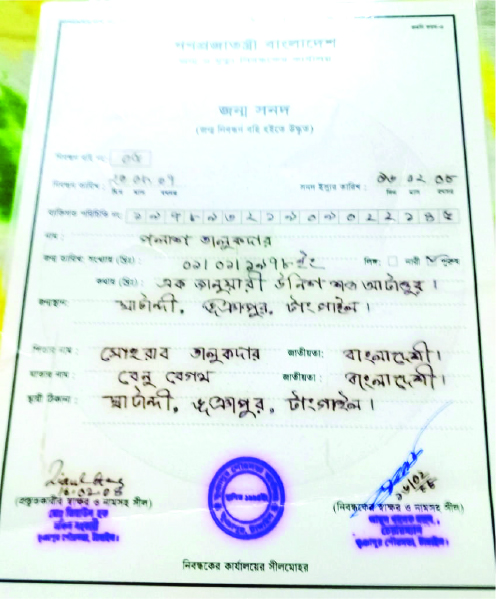 গণপ্রজাতন্ত্রী বাংলাদেশ
জন্ম ও মৃত্যু নিবন্ধকের কার্যালয়
জন্ম সনদ
(জন্ম নিবন্ধন বহি হইতে উদ্ধৃত)
নিবন্ধন বহি নং: ০৫
নিবন্ধন তারিখ: সনদ ইস্যুর তারিখ:
দিন মাস বৎসর দিন মাস বৎসর
ব্যক্তিগত পরিচিতি নং:
নাম: পলাশ তালুকদার
জন্ম তারিখ সংখ্যায় (খ্রিঃ) ০১/০১/১৯৭৮ ইং লিঙ্গ: নারী পুরুষ
কথায় (খ্রিঃ) এক জানুয়ারী উনিশ শত আটাত্তর।
জন্মস্থান: ঘাটান্দী, ভূঞাপুর, টাংগাইল।
পিতার নাম: সোহরাব তালুকদার জাতীয়তা: বাংলাদেশী।
মাতার নাম: বেনু বেগম জাতীয়তা: বাংলাদেশী।
স্থায়ী ঠিকানা: ঘাটান্দী, ভূঞাপুর, টাংগাইল।
(প্রস্তুতকারীর স্বাক্ষর ও নামসহ সীল) (নিবন্ধকের স্বাক্ষর ও নামসহ সীল)
ভূঞাপুর পৌরসভা, টাঙ্গাইল। ভূঞাপুর পৌরসভা, টাঙ্গাইল।
নিবন্ধকের কার্যালয়ের সীলমোহর